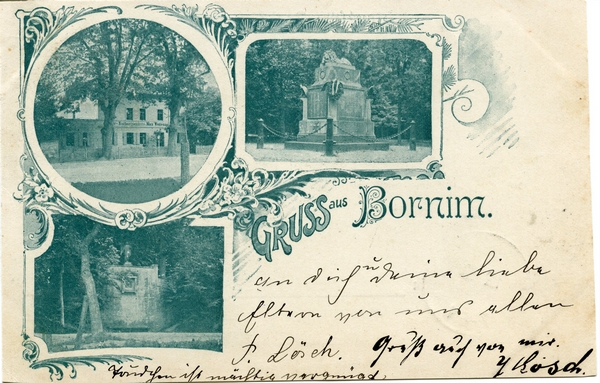 Gruss aus Bornim.
an dich u deine liebe
Eltern von uns allen
P. Lösch. Gruß auch von mir.
J Lösch.
ist mächtig vergnügt.